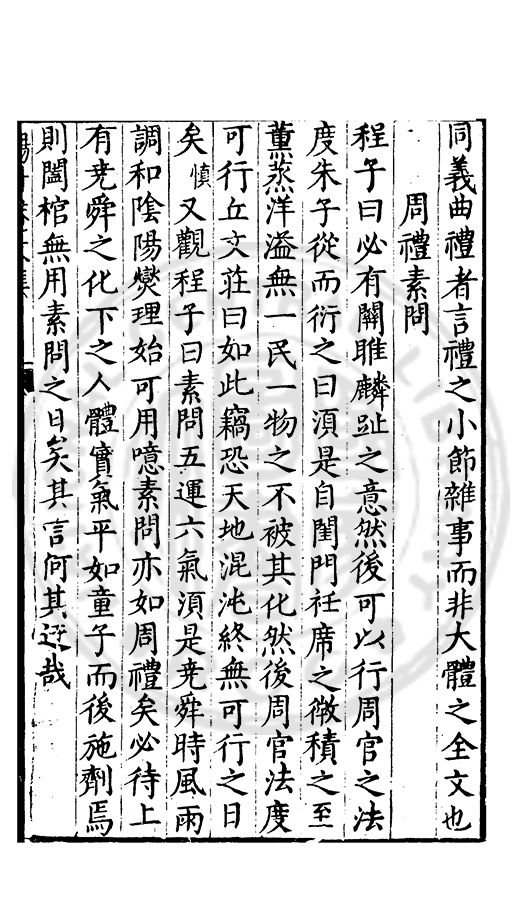 同義曲禮者言禮之小節雜事而非大體之全文也
周禮素問
程子曰必有關雎麟趾之意然後可以行周官之法
度朱子從而衍之曰須是自閨門衽席之微積之至
薰蒸洋溢無一民一物之不被其化然後周官法度
可行丘文莊曰如此竊恐天地混沌終無可行之日
矣慎又觀程子曰素問五運六氣須是堯舜時風雨
調和陰陽爕理始可用噫素問亦如周禮矣必待上
有堯舜之化下之人體實氣平如童子而後施劑焉
則闔棺無用素問之日矣其言何其迂哉